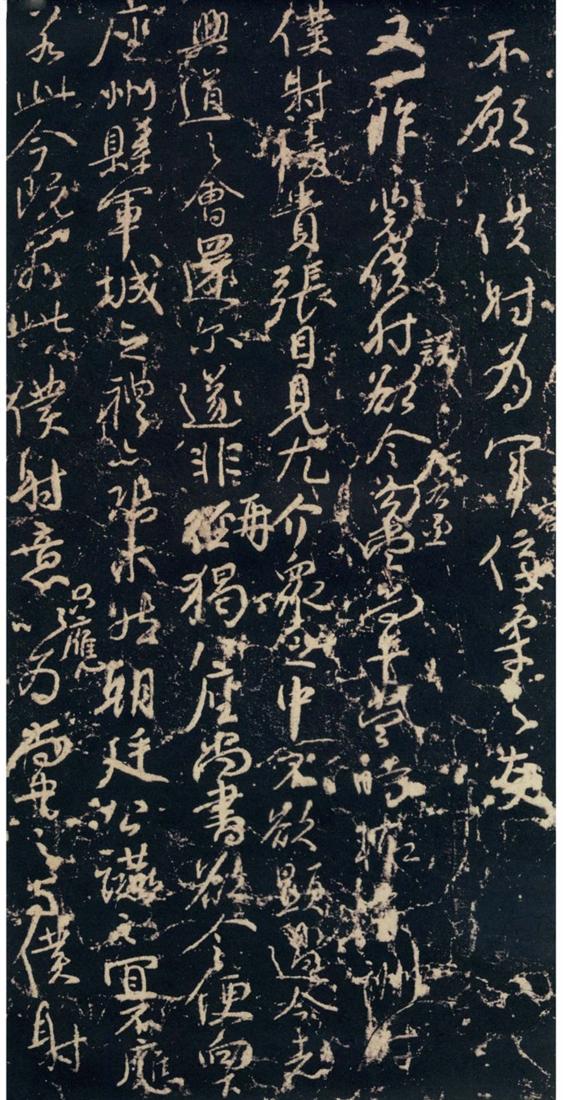 不願僕射為軍容佞柔之友
又一昨裴僕射誤欲令左右丞勾當尚書當時輒有酬對
僕射恃貴張目見尤介眾之中不欲顯過今者
興道之會還尔遂非再猲八座尚書欲令便向下
座州縣軍城之禮亦恐未然朝廷公讌之宜不應
若此今既若此僕射意只應為尚書之与僕射